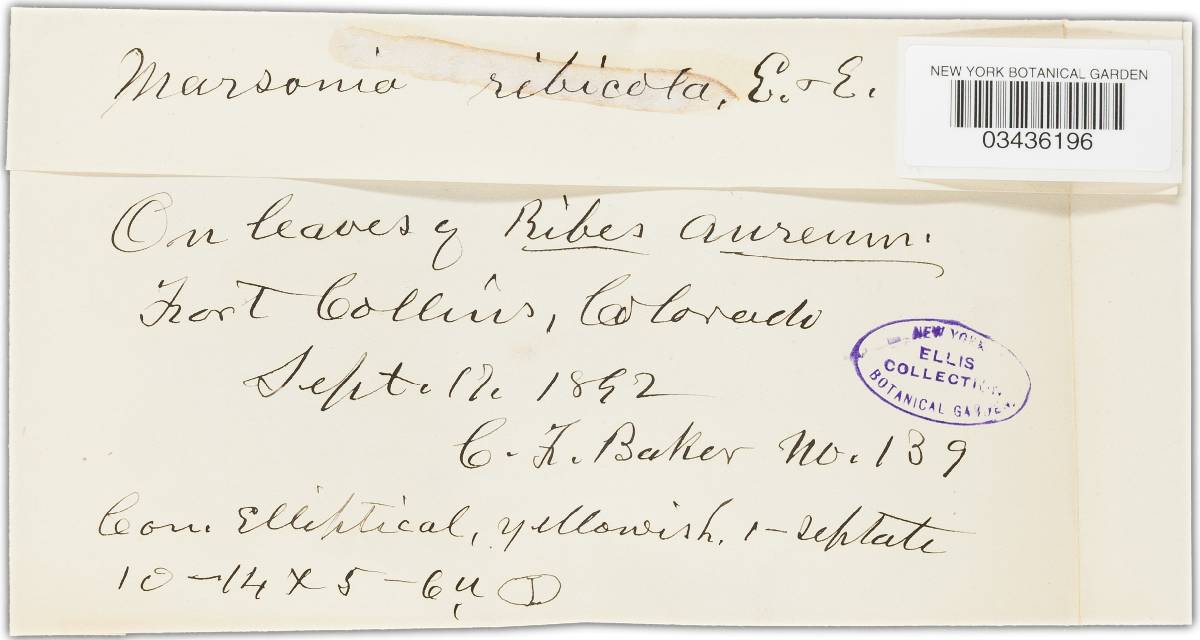 Marsonia ribicola, E. & E.
NEW YORK BOTANICAL GARDEN
03436196
On leaves of Ribes aureum.
Fort Collins, Colorado
NEW YORK
ELLIS
COLLECTION
BOTANICAL GARDEN
Sept. 17. 1892
C. F. Baker No. 139
Con. Elliptical, yellowish, 1-septate
10-14 x 5-6 µ